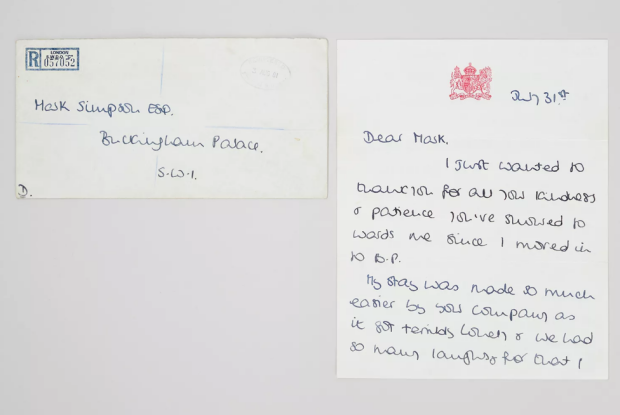 R
LONDON
057052
Mark Simpson ESQ.
Buckingham Palace.
S.W.1.
D.
July 31st
Dear Mark.
I just wanted to
thank you for all your kindness
& patience you've showed to
wards me since I moved in
to B.P.
My stay was made so much
easier by your company as
it got terribly lonely & we had
so many laughs, for that I